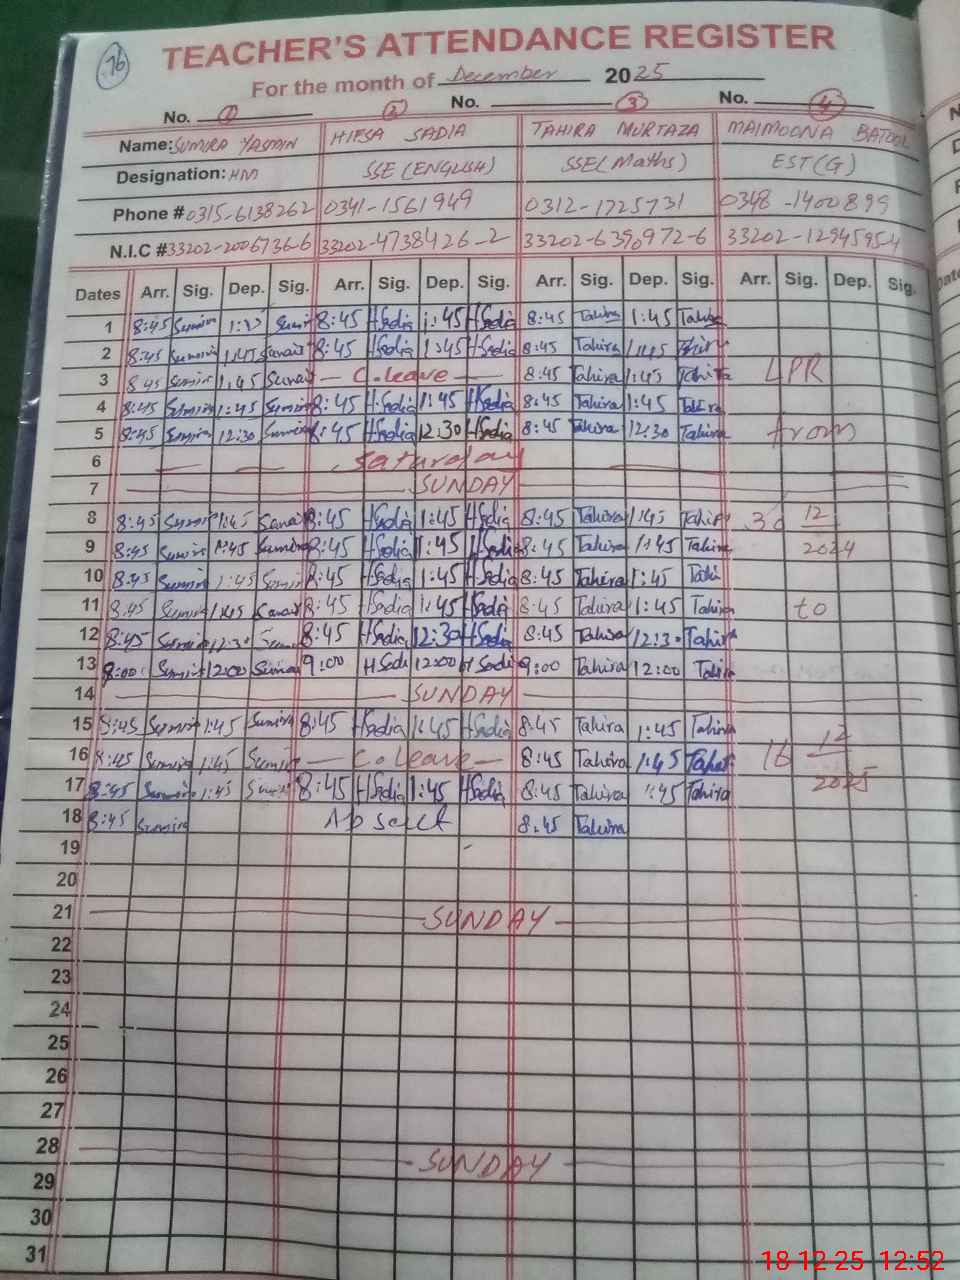 76
TEACHER'S ATTENDANCE REGISTER
For the month of December 2025
No. 1 2 No. 3 No. 4
Name: SUMIRA YASMIN HIFSA SADIA TAHIRA MURTAZA MAIMOONA BATOOL
Designation: HM SSE (ENGLISH) SSE (Maths) EST (G)
Phone # 0315-6138262 0341-1561949 0312-1725731 0348-1400899
N.I.C # 33202-2006736-6 33202-4738426-2 33202-6390972-6 33202-12945954
Dates Arr. Sig. Dep. Sig. Arr. Sig. Dep. Sig. Arr. Sig. Dep. Sig. Arr. Sig. Dep. Sig.
1 8:45 Sumira 8:45 HSadia 1:45 HSadia 8:45 Tahira 1:45 Tahira
2 8:45 Sumira 1:45 8:45 HSadia 1:45 HSadia 8:45 Tahira 1:45 Tahira
3 8:45 Sumira 1:45 C.leave 8:45 Tahira 1:45 Tahira LPR
4 8:45 Sumira 1:45 Sumira 8:45 HSadia 1:45 HSadia 8:45 Tahira 1:45 Tahira
5 8:45 Sumira 12:30 Sumira 8:45 HSadia 12:30 HSadia 8:45 Tahira 12:30 Tahira from
6 Saturday
7 SUNDAY
8 8:45 Sumira 1:45 8:45 HSadia 1:45 HSadia 8:45 Tahira 1:45 Tahira 30 12
9 8:45 Sumira 1:45 Sumira 8:45 HSadia 1:45 HSadia 8:45 Tahira 1:45 Tahira 2024
10 8:45 Sumira 1:45 Sumira 8:45 HSadia 1:45 HSadia 8:45 Tahira 1:45
11 8:45 Sumira 1:45 8:45 HSadia 1:45 HSadia 8:45 Tahira 1:45 Tahira to
12 8:45 Sumira 12:30 8:45 HSadia 12:30 HSadia 8:45 Tahira 12:30 Tahira
13 8:00 Sumira 12:00 Sumira 9:00 HSadia 12:00 HSadia 9:00 Tahira 12:00 Tahira
14 SUNDAY
15 8:45 Sumira 1:45 Sumira 8:45 HSadia 1:45 HSadia 8:45 Tahira 1:45 Tahira 12
16 8:45 Sumira 1:45 Sumira C.leave 8:45 Tahira 1:45 Tahira 16
17 8:45 Sumira 1:45 8:45 HSadia 1:45 HSadia 8:45 Tahira 1:45 Tahira 2025
18 8:45 Sumira 8:45 Tahira
19
20
21 SUNDAY
22
23
24
25
26
27
28 SUNDAY
29
30
31
18 12 25 12:52